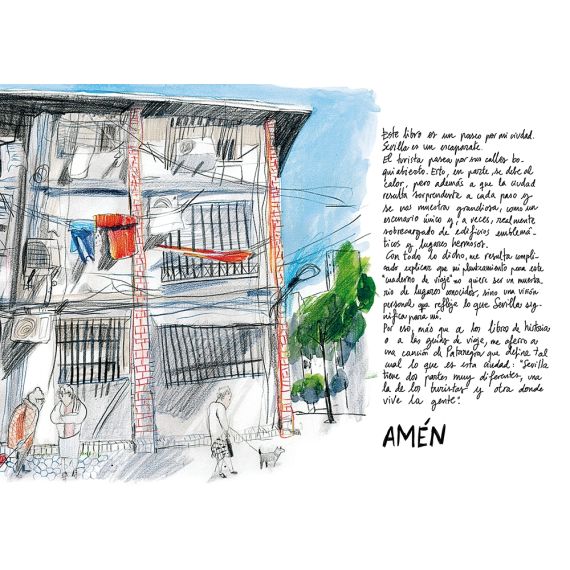 Este libro es un paseo por mi ciudad.
Sevilla es un escaparate.
El turista pasea por sus calles bo-
quiabierto. Esto, en parte se debe al
calor, pero además a que la ciudad
resulta sorprendente a cada paso y
se nos muestra grandiosa, como un
escenario único y, a veces, realmente
sobrecargado de edificios emblemá-
ticos y lugares hermosos.
Con todo lo dicho, me resulta compli-
cado explicar que mi planteamiento para este
"cuaderno de viaje" no quiere ser un muestra-
rio de lugares conocidos, sino una visión
personal que refleje lo que Sevilla sig-
nifica para mí.
Por eso, más que a los libros de historia
o a las guías de viaje, me aferro a
una canción de Patanegra que define tal
cual lo que es esta ciudad: "Sevilla
tiene dos partes muy diferentes, una
la de los turistas y otra donde
vive la gente".
AMÉN